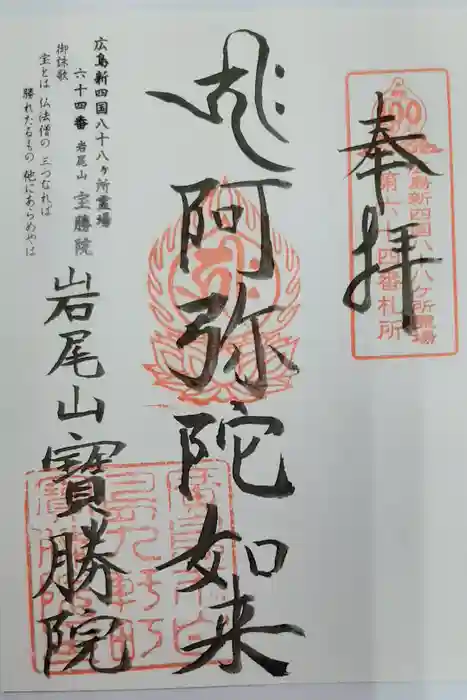 奉拝
100
広島新四国八十八ヶ所霊場
第六十四番札所
阿弥陀如来
広島新四国八十八ヶ所霊場
六十四番 岩尾山 宝勝院
御詠歌
宝とは 仏法僧の 三つなれば
勝れたるもの 他にあらめやは
岩尾山寳勝院